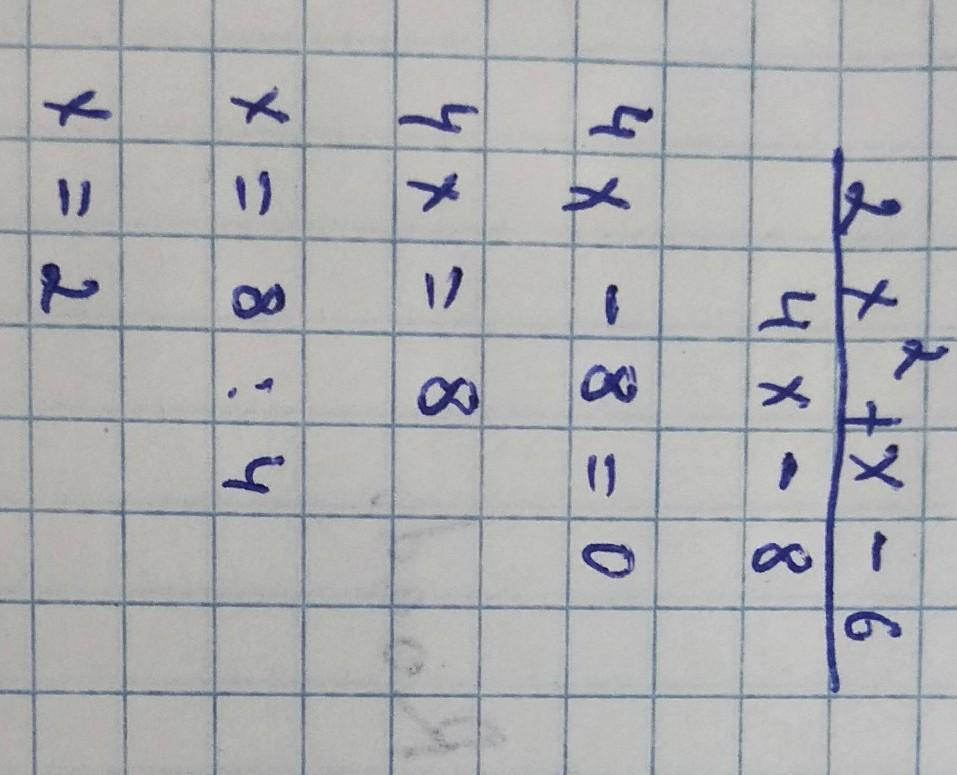 2x²+x-6
4x-8
4x-8=0
4x=8
x=8:4
x=2